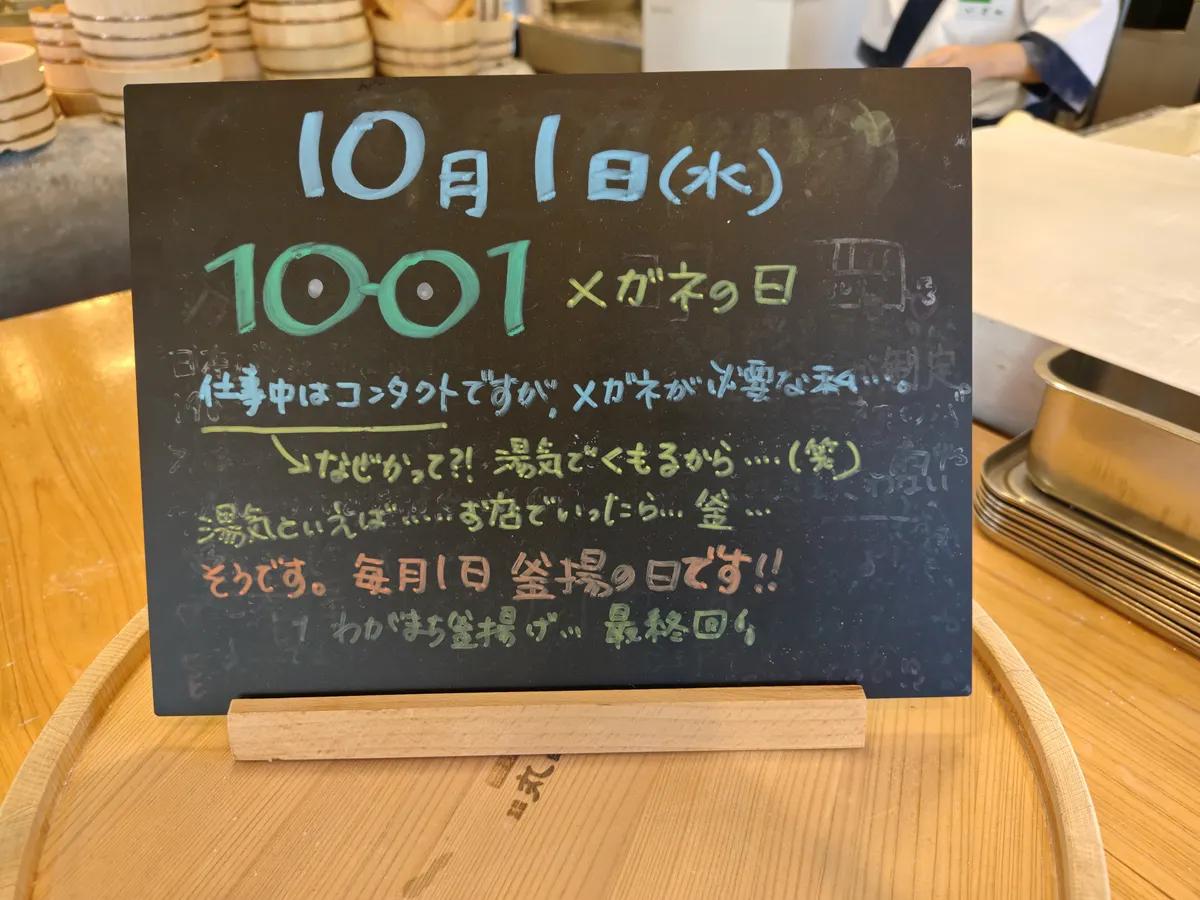 10月1日(水)
1001 メガネの日
仕事中はコンタクトですが、メガネが必要な私…。
なぜかって?! 湯気でくもるから‥‥(笑)
湯気といえば……お店でいったら… 釜…
そうです。毎月1日 釜揚の日です!!
わがまち釜揚げ… 最終回
丸